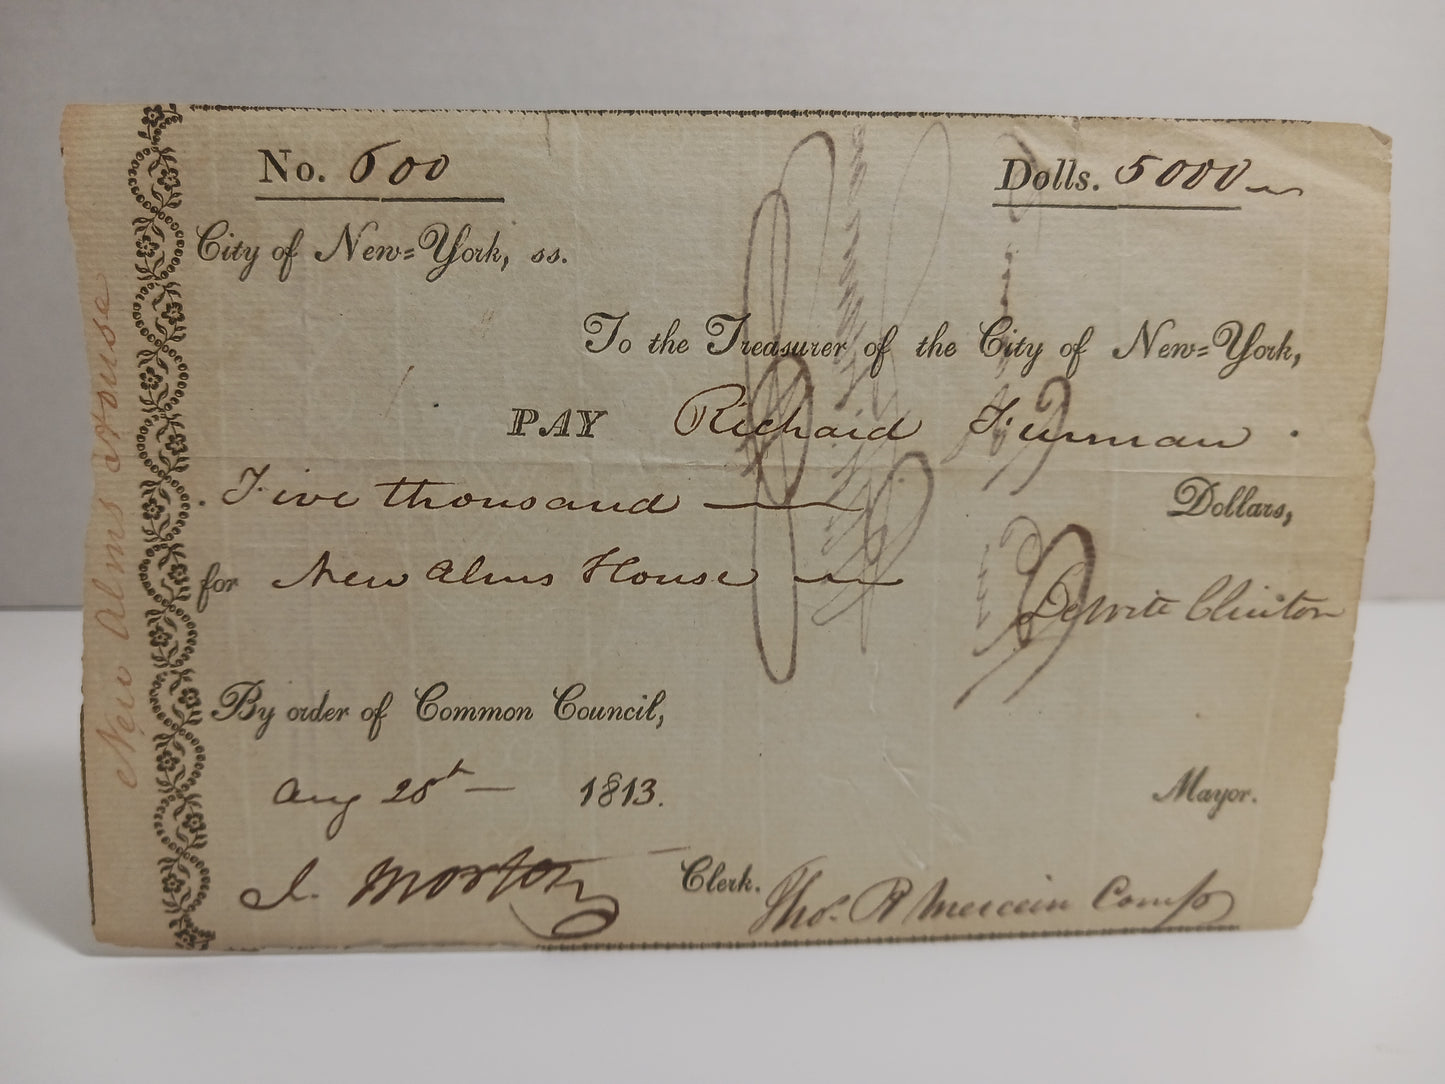 No. 600
Dolls. 5000
City of New=York, ss.
To the Treasurer of the City of New=York,
PAY Richard Furman
Five thousand Dollars,
for New Alms House
Dewitt Clinton
By order of Common Council,
Aug 28th 1813.
Mayor.
J. Morton Clerk.
Thos. R Mercein Comp
New Alms House